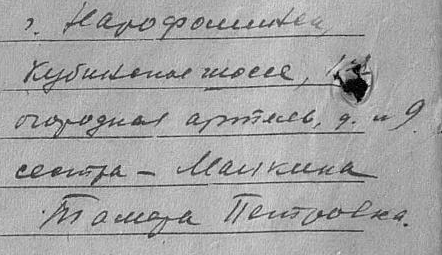 г. Нарофоминск,
Кубинское шоссе, 1-я
огородная артель, д. №9.
сестра – Малкина
Тамара Петровна.